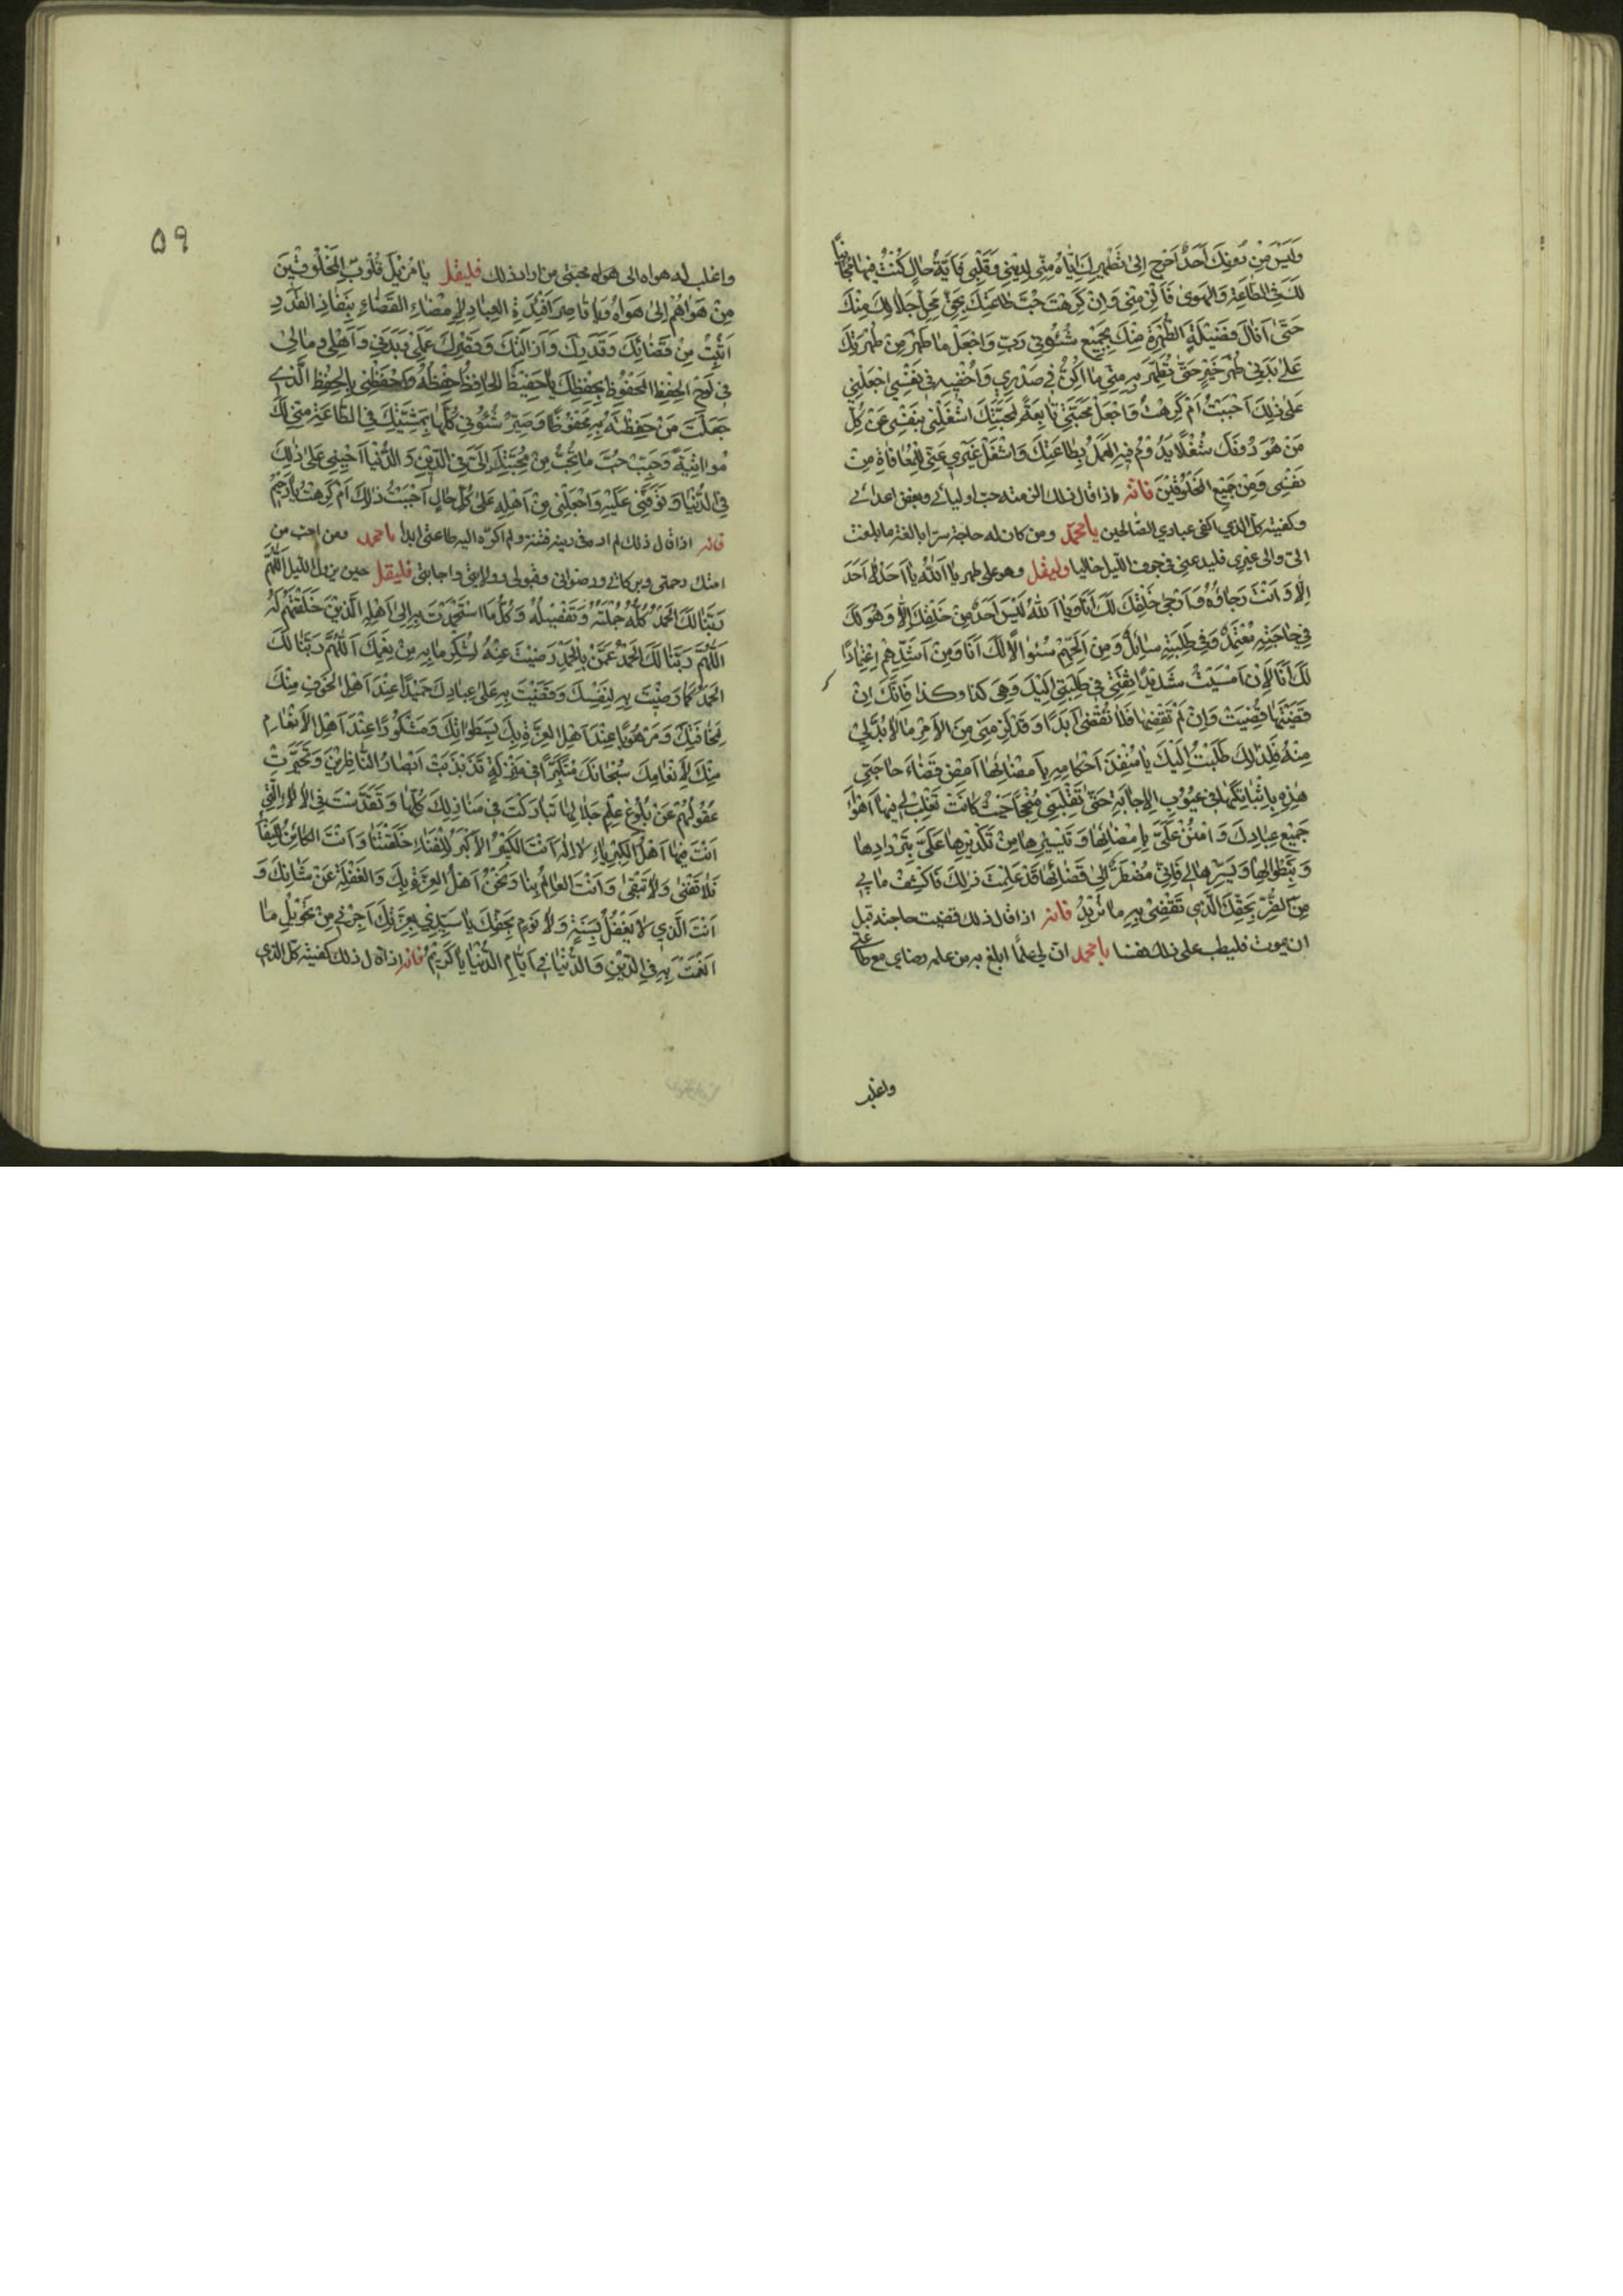 وَلَيْسَ مِنْ دُونِكَ اَحَدٌ اَحْوَجَ اِلىٰ تَطْهِيرِكَ اِيّٰاهُ مِنّي لِدِيْنِي وَقَلْبِي فَاَيَّةُ حٰالٍ كُنْتُ فِيهٰا مُجٰانِبًا
لَكَ فِي الطّٰاعَةِ وَالْهَوىٰ فَاَلْزِمْنِي وَاِنْ كَرِهْتُ حُبَّ طٰاعَتِكَ بِحَقِّ مَحَلِّ جَلٰالِكَ مِنْكَ
حَتّىٰ اَنٰالَ فَضِيْلَةَ الطُّهْرَةِ مِنْكَ بِجَمِيْعِ شُئُونِي رَبِّ وَاجْعَلْ مٰا ظَهَرَ مِنْ طُهْرَتِكَ
عَلىٰ بَدَنِي طُهْرَ خَيْرٍ حَتّىٰ تُطَهِّرَ بِهِ مِنّي مٰا اُكِنُّ فِي صَدْرِي وَاُخْفِيهِ فِي نَفْسِي اجْعَلْنِي
عَلىٰ ذٰلِكَ اَحْبَبْتُ اَمْ كَرِهْتُ وَاجْعَلْ مَحَبَّتِي تٰابِعَةً لِمَحَبَّتِكَ اشْغَلْنِي بِنَفْسِي عَنْ كُلِّ
مَنْ هُوَ دُونَكَ شُغْلًا يَدُومُ فِيهِ الْعَمَلُ بِطٰاعَتِكَ وَاشْغَلْ غَيْرِي عَنّي لِلْمُعٰافٰاةِ مِنْ
نَفْسِي وَمِنْ جَمِيْعِ الْمَخْلُوقِيْنَ فانه اذا قال ذلك الزمته حب اوليائي وبغض اعدائي
وكفيته كل الذي اكفي عبادي الصالحين يا محمد ومن كان له حاجة سرا بالغة ما بلغت
الي والى غيري فليدعني في جوف الليل خاليا وليقل وهو على طهر يٰا اَللّٰهُ يٰا اَحَدٌ لٰا اَحَدَ
اِلّٰا وَاَنْتَ رَجٰاؤُهُ وَاَرْجىٰ خَلْقِكَ لَكَ اَنَا وَيٰا اَللّٰهُ لَيْسَ اَحَدٌ مِنْ خَلْقِكَ اِلّٰا وَهُوَ لَكَ
فِي حٰاجَتِهِ مُعْتَمِدٌ وَفِي طَلِبَتِهِ سٰائِلٌ وَمِنْ اَلَحِّهِمْ سُئوٰالًا لَكَ اَنَا وَمِنْ اَشَدِّهِمُ اعْتِمٰادًا
لَكَ اَنَا لِاَنْ اَمْسَيْتُ شَدِيْدًا ثِقَتِي فِي طَلِبَتِي اِلَيْكَ وَهِيَ كذا وكذا فَاِنَّكَ اِنْ
قَضَيْتَهٰا قُضِيَتْ وَاِنْ لَمْ تَقْضِهٰا فَلٰا تُقْضىٰ اَبَدًا وَقَدْ لَزِمَنِي مِنَ الْاَمْرِ مٰا لٰا بُدَّ لِي
مِنْهُ فَلِذٰلِكَ طَلَبْتُ اِلَيْكَ يٰا مُنْفِذَ اَحْكٰامِهِ بِاِمْضٰائِهٰا اَمْضِ قَضٰاءَ حٰاجَتِي
هٰذِهِ بِاِثْبٰاتِكَهٰا فِي غُيُوبِ الْاِجٰابَةِ حَتّىٰ تَقْلِبَنِي مُنْجِحًا حَيْثُ كٰانَتْ تَغْلِبُ لِي فِيهٰا اَهْوٰاءَ
جَمِيْعِ عِبٰادِكَ وَامْنُنْ عَلَيَّ بِاِمْضٰائِهٰا وَتَيْسِيْرِهٰا مِنْ تَكْدِيْرِهٰا عَلَيَّ بِتَرْدٰادِهٰا
وَبِتَطْوٰالِهٰا وَيَسِّرْهٰا لِي فَاِنّي مُضْطَرٌّ اِلىٰ قَضٰائِهٰا قَدْ عَلِمْتَ ذٰلِكَ فَاكْشِفْ مٰا بِي
مِنَ الضُّرِّ بِحَقِّكَ الَّذِي تَقْضِي بِهِ مٰا تُرِيْدُ فانه اذا قال ذلك قضيت حاجته قبل
ان يموت فليطب على ذلك نفسا يا محمد ان لي علما ابلغ به من علمه رضاي مع طاعتي
واغلب
۵۹
واغلب له هواه الى هواه محبتي من اراد ذلك فليقل يٰا مُزِيْلَ قُلُوبِ الْمَخْلُوقِيْنَ
مِنْ هَوٰاهُمْ اِلىٰ هَوٰاهُ وَيٰا قٰاصِرَ اَفْئِدَةِ الْعِبٰادِ لِاِمْضٰاءِ الْقَضٰاءِ بِنَفٰاذِ الْقَدَرِ
اَثْبِتْ مِنْ قَضٰائِكَ وَقَدَرِكَ وَاَزَلِيَّتِكَ وَقَهْرِكَ عَمَلِي وَبَدَنِي وَاَهْلِي وَمٰالِي
فِي لَوْحِ الْحِفْظِ الْمَحْفُوظِ بِحِفْظِكَ يٰا حَفِيْظُ الْحٰافِظُ حِفْظُهُ وَاحْفَظْنِي بِالْحِفْظِ الَّذِي
جَعَلْتَ مَنْ حَفِظْتَهُ بِهِ مَحْفُوظًا وَصَيِّرْ شُئُونِي كُلَّهٰا بِمَشِيَّتِكَ فِي الطّٰاعَةِ مِنّي لَكَ
مُوٰاتِيَةً وَحَبِّبْ حُبَّ مٰا تُحِبُّ مِنْ مَحَبَّتِكَ اِلَيَّ فِي الدِّيْنِ وَالدُّنْيٰا اَحْيِنِي عَلىٰ ذٰلِكَ
فِي الدُّنْيٰا وَتَوَفَّنِي عَلَيْهِ وَاجْعَلْنِي مِنْ اَهْلِهِ عَلىٰ كُلِّ حٰالٍ اَحْبَبْتُ ذٰلِكَ اَمْ كَرِهْتُ يٰا رَحِيْمُ
فانه اذا قال ذلك لم اره في دينه فتنة ولم اكره اليه طاعتي ابدا يا محمد ومن احب من
امتك رحمتي وبركاتي ورضواني وقبولي وولايتي واجابتي فليقل حين يزول الليل اَللّٰهُمَّ
رَبَّنٰا لَكَ الْحَمْدُ كُلُّهُ جُمْلَتُهُ وَتَفْصِيْلُهُ وَكُلُّ مٰا اسْتَحْمَدْتَ بِهِ اِلىٰ اَهْلِهِ الَّذِيْنَ خَلَقْتَهُمْ لَهُ
اَللّٰهُمَّ رَبَّنٰا لَكَ الْحَمْدُ عَمَّنْ بِالْحَمْدِ رَضِيْتَ عَنْهُ لِشُكْرِ مٰا بِهِ مِنْ نِعَمِكَ اَللّٰهُمَّ رَبَّنٰا لَكَ
الْحَمْدُ كَمٰا رَضِيْتَ بِهِ لِنَفْسِكَ وَقَضَيْتَ بِهِ عَلىٰ عِبٰادِكَ حَمِيْدًا عِنْدَ اَهْلِ الْخَوْفِ مِنْكَ
لِمَخٰافَتِكَ وَمَرْهُوبًا عِنْدَ اَهْلِ الْعِزَّةِ بِكَ لِسَطَوٰاتِكَ وَمَشْكُورًا عِنْدَ اَهْلِ الْاِنْعٰامِ
مِنْكَ لِاِنْعٰامِكَ سُبْحٰانَكَ مُتَكَبِّرًا فِي مَنْزِلَةٍ تَذَبْذَبَتْ اَبْصٰارُ النّٰاظِرِيْنَ وَتَحَيَّرَتْ
عُقُولُهُمْ عَنْ بُلُوغِ عِلْمِ جَلٰالِهٰا تَبٰارَكْتَ فِي مَنٰازِلِكَ كُلِّهٰا وَتَقَدَّسْتَ فِي الْاٰلٰاءِ الَّتِي
اَنْتَ فِيهٰا اَهْلُ الْكِبْرِيٰاءِ لٰا اِلٰهَ اِلّٰا اَنْتَ الْكَبِيْرُ الْاَكْبَرُ لِلْفَنٰاءِ خَلَقْتَنٰا وَاَنْتَ الْكٰائِنُ لِلْبَقٰاءِ
فَلٰا تَفْنىٰ وَلٰا نَبْقىٰ وَاَنْتَ الْعٰالِمُ بِنٰا وَنَحْنُ اَهْلُ الْغِرَّةِ بِكَ وَالْغَفْلَةِ عَنْ شَأْنِكَ وَ
اَنْتَ الَّذِي لٰا يَغْفُلُ بِسِنَةٍ وَلٰا نَوْمٍ بِحَقِّكَ يٰا سَيِّدِي بِعِزَّتِكَ اَجِرْنِي مِنْ تَحْوِيْلِ مٰا
اَنْعَمْتَ بِهِ فِي الدِّيْنِ وَالدُّنْيٰا فِي اَيّٰامِ الدُّنْيٰا يٰا كَرِيْمُ فانه اذا قال ذلك كفيته كل الذي